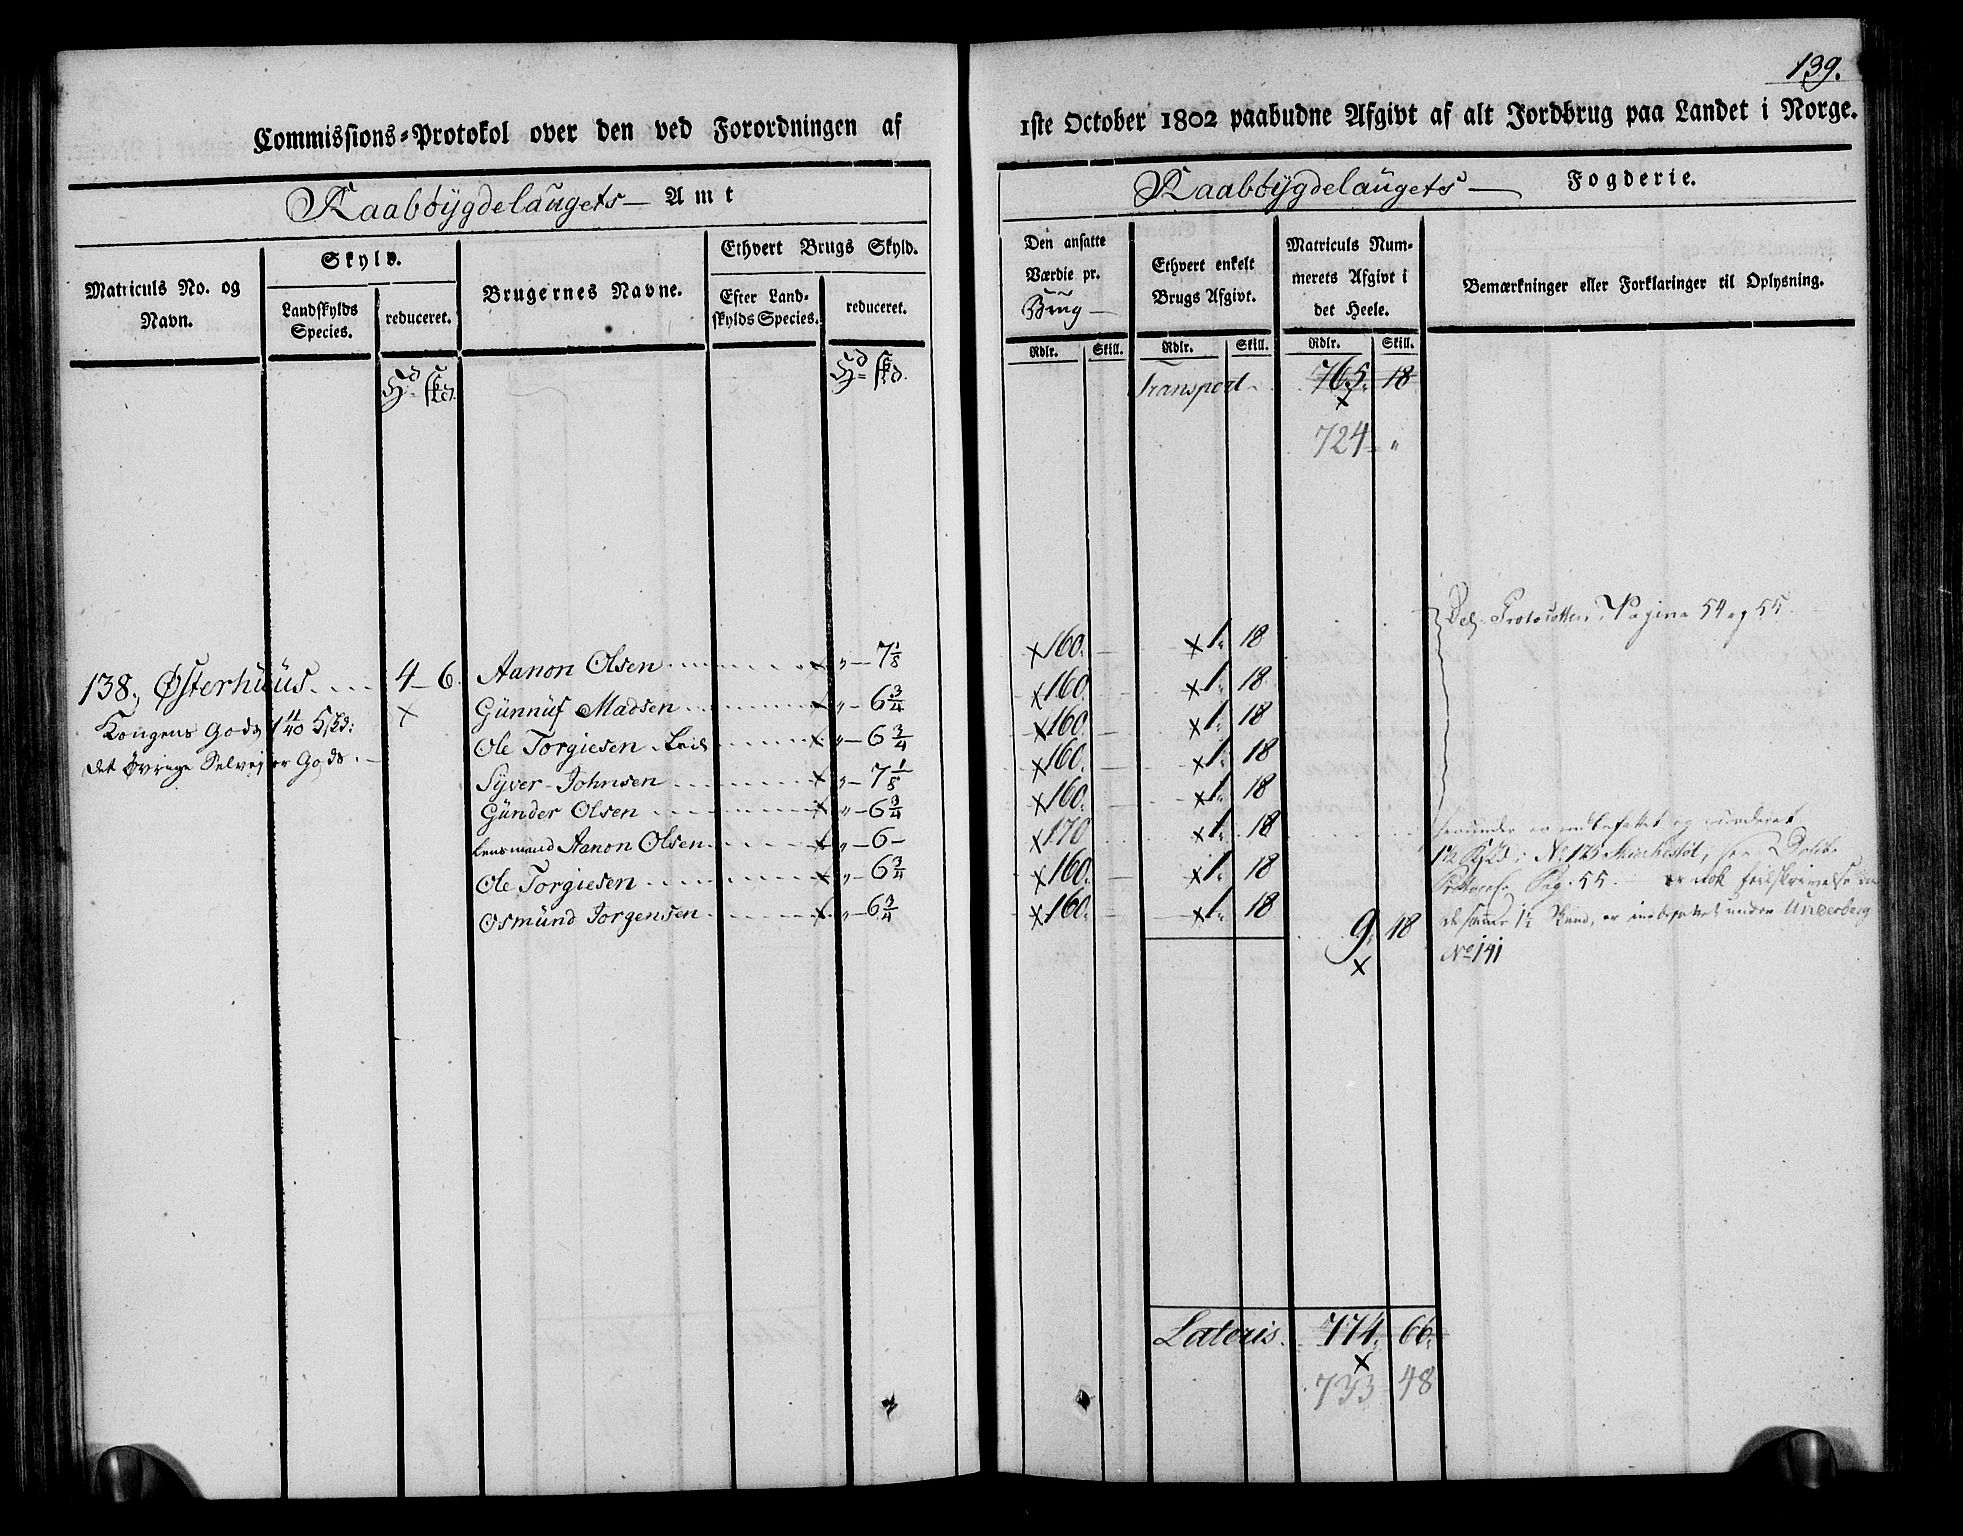 139.
Commissions-Protokol over den ved Forordningen af 1ste October 1802 paabudne Afgivt af alt Jordbrug paa Landet i Norge.
Raabøygdelaugets Amt
Raabøygdelaugets Fogderie.
Matriculs No. og Navn.
Skyld.
Landskylds Species.
reduceret.
Brugernes Navne.
Ethvert Brugs Skyld.
Efter Landskylds Species.
reduceret.
Den ansatte Værdie pr. Brug
Ethvert enkelt Brugs Afgivt.
Matriculs Nummerets Afgivt i det Heele.
Bemærkninger eller Forklaringer til Oplysning.
Rdlr. Skill. Rdlr. Skill. Rdlr. Skill.
Transport 765. 18
724 "
Protocollen Pagina 54 og 55
138, Østerhuus 4 - 6. Aanon Olsen " - 7 1/8 160. 1. 18
Kongens Gods 1 11/40
det Øvrige Selvejer Gods.
Gunnuf Madsen " - 6 3/4 160. 1. 18
Ole Torgiesen " - 6 3/4 160. 1. 18
Syver Johnsen " - 7 1/8 160. 1. 18
Gunder Olsen " - 6 3/4 160. 1. 18
Lensmand Aanon Olsen " - 6 - 170 1. 18
Ole Torgiesen " - 6 3/4 160. 1. 18
Osmund Jorgensen " - 6 3/4 160. 1. 18
9. 48
herunder er indbefattet og vurderet
No 125
Pag. 55. er nok feilskrivelse
1 1/2 er indbefattet under Underberg
No 141
Lateris 774. 66.
733 48